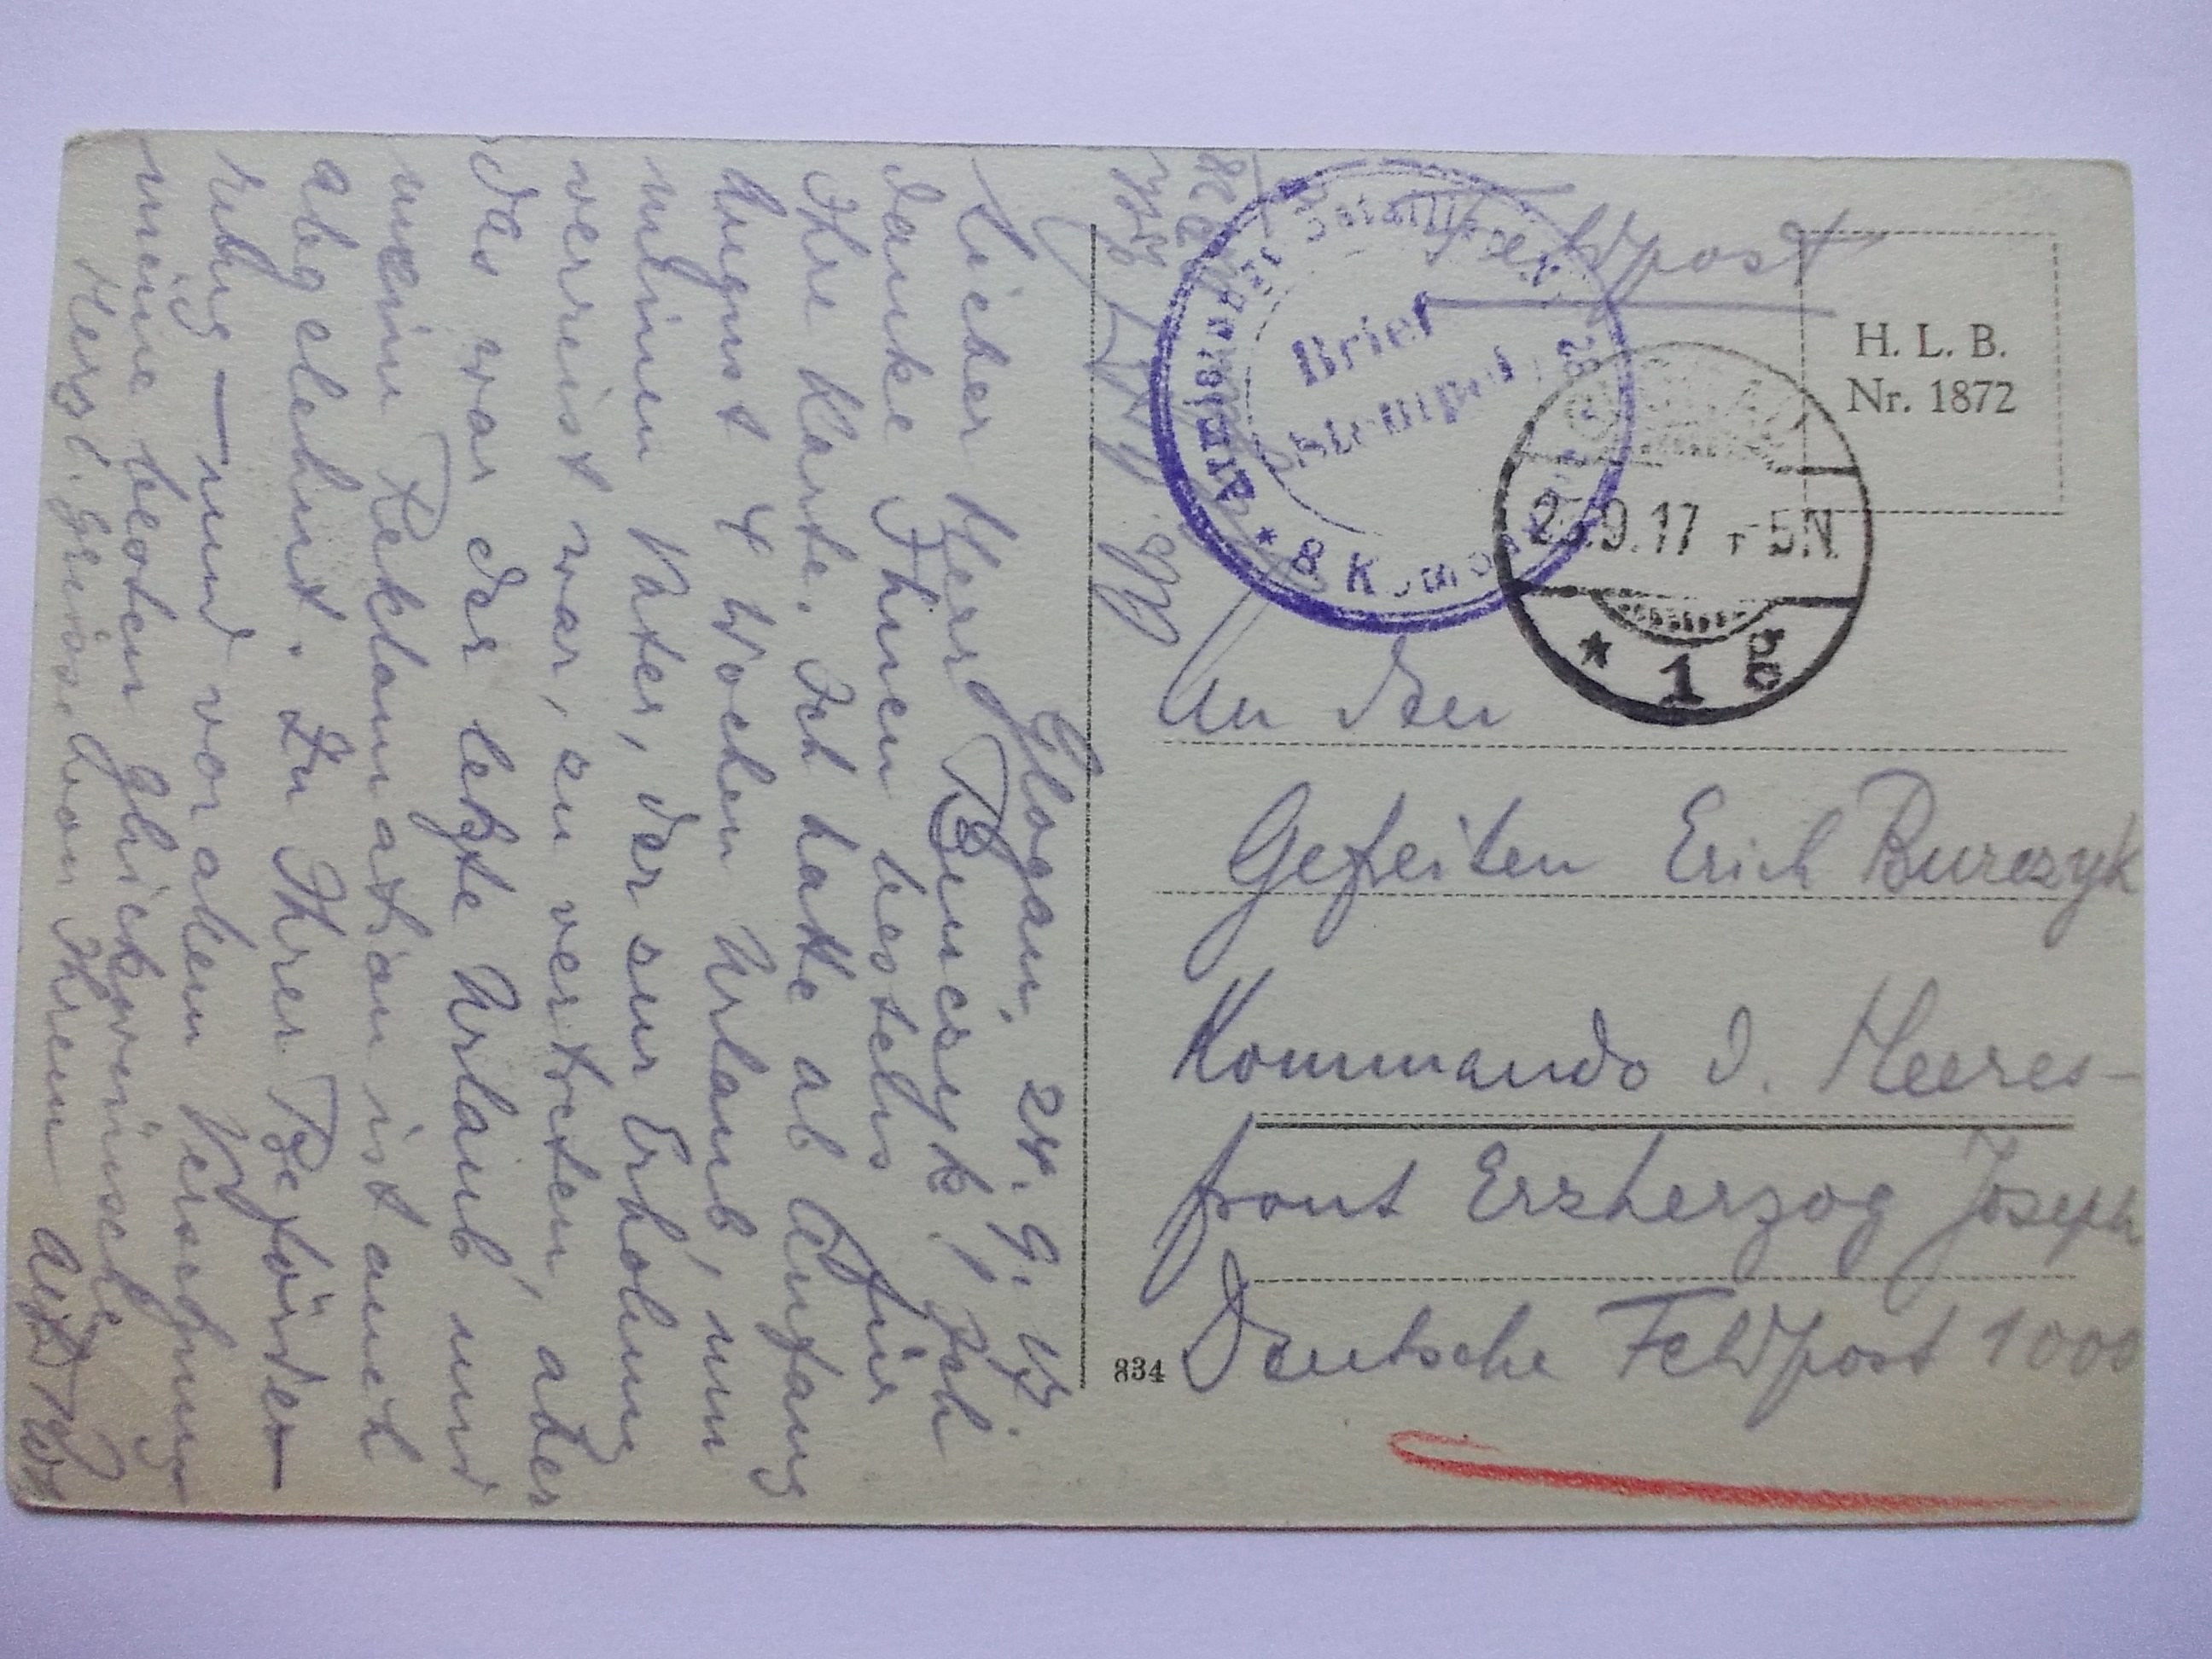 Glogau, 24. 9. 17.
Lieber Herr Burczyk! Ich
danke Ihnen bestens für
Ihre Karte. Ich hatte ab Anfang
August 4 Wochen Urlaub, um
meinen Vater, der zur Erholung
verreist war, zu vertreten, aber
das war der letzte Urlaub und
meine Reklamation ist auch
abgelehnt. Zu Ihrer Beförde-
rung – und vor allem Versetzung
meine besten Glückwünsche
Herzl. Grüsse von Ihrem
Feldpost
Armierungs Bataillon
Brief
Stempel
* 8 Komp
H. L. B.
Nr. 1872
9.17 5N
* 1 g
An den
Gefreiten Erich Burczyk
Kommando d. Heeres-
front Erzherzog Joseph
Deutsche Feldpost 1000
834